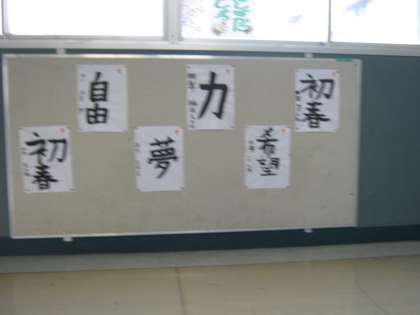 自由
力
初春
初春
夢
希望